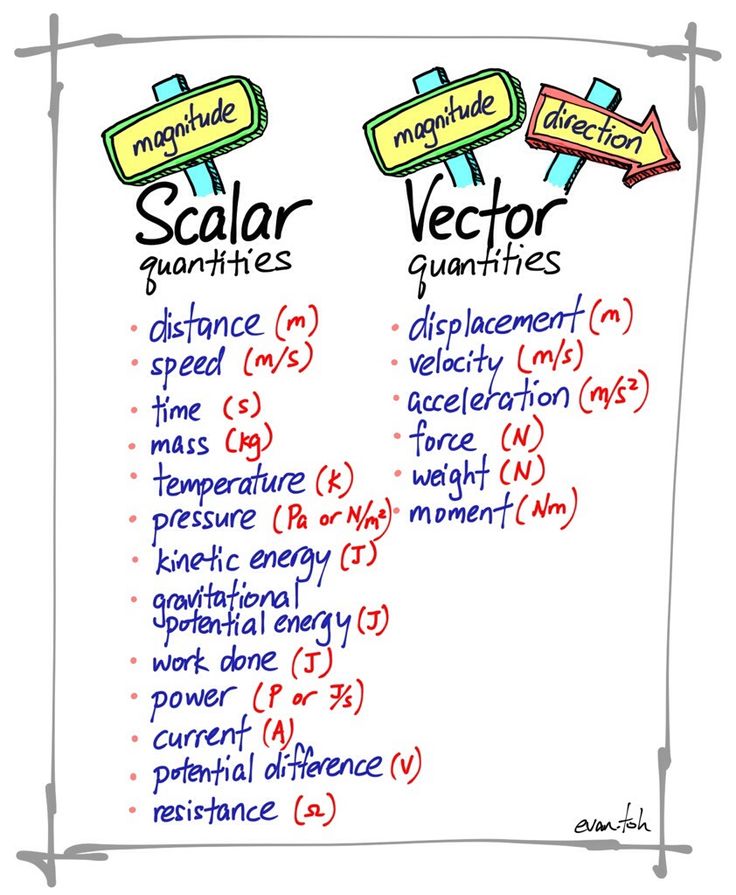 magnitude
Scalar
quantities
• distance (m)
• speed (m/s)
• time (s)
• mass (kg)
• temperature (K)
• pressure (Pa or N/m²)
• kinetic energy (J)
• gravitational
potential energy (J)
• work done (J)
• power (P or J/s)
• current (A)
• potential difference (V)
• resistance (Ω)
magnitude
direction
Vector
quantities
• displacement (m)
• velocity (m/s)
• acceleration (m/s²)
• force (N)
• weight (N)
• moment (Nm)
evan.toh